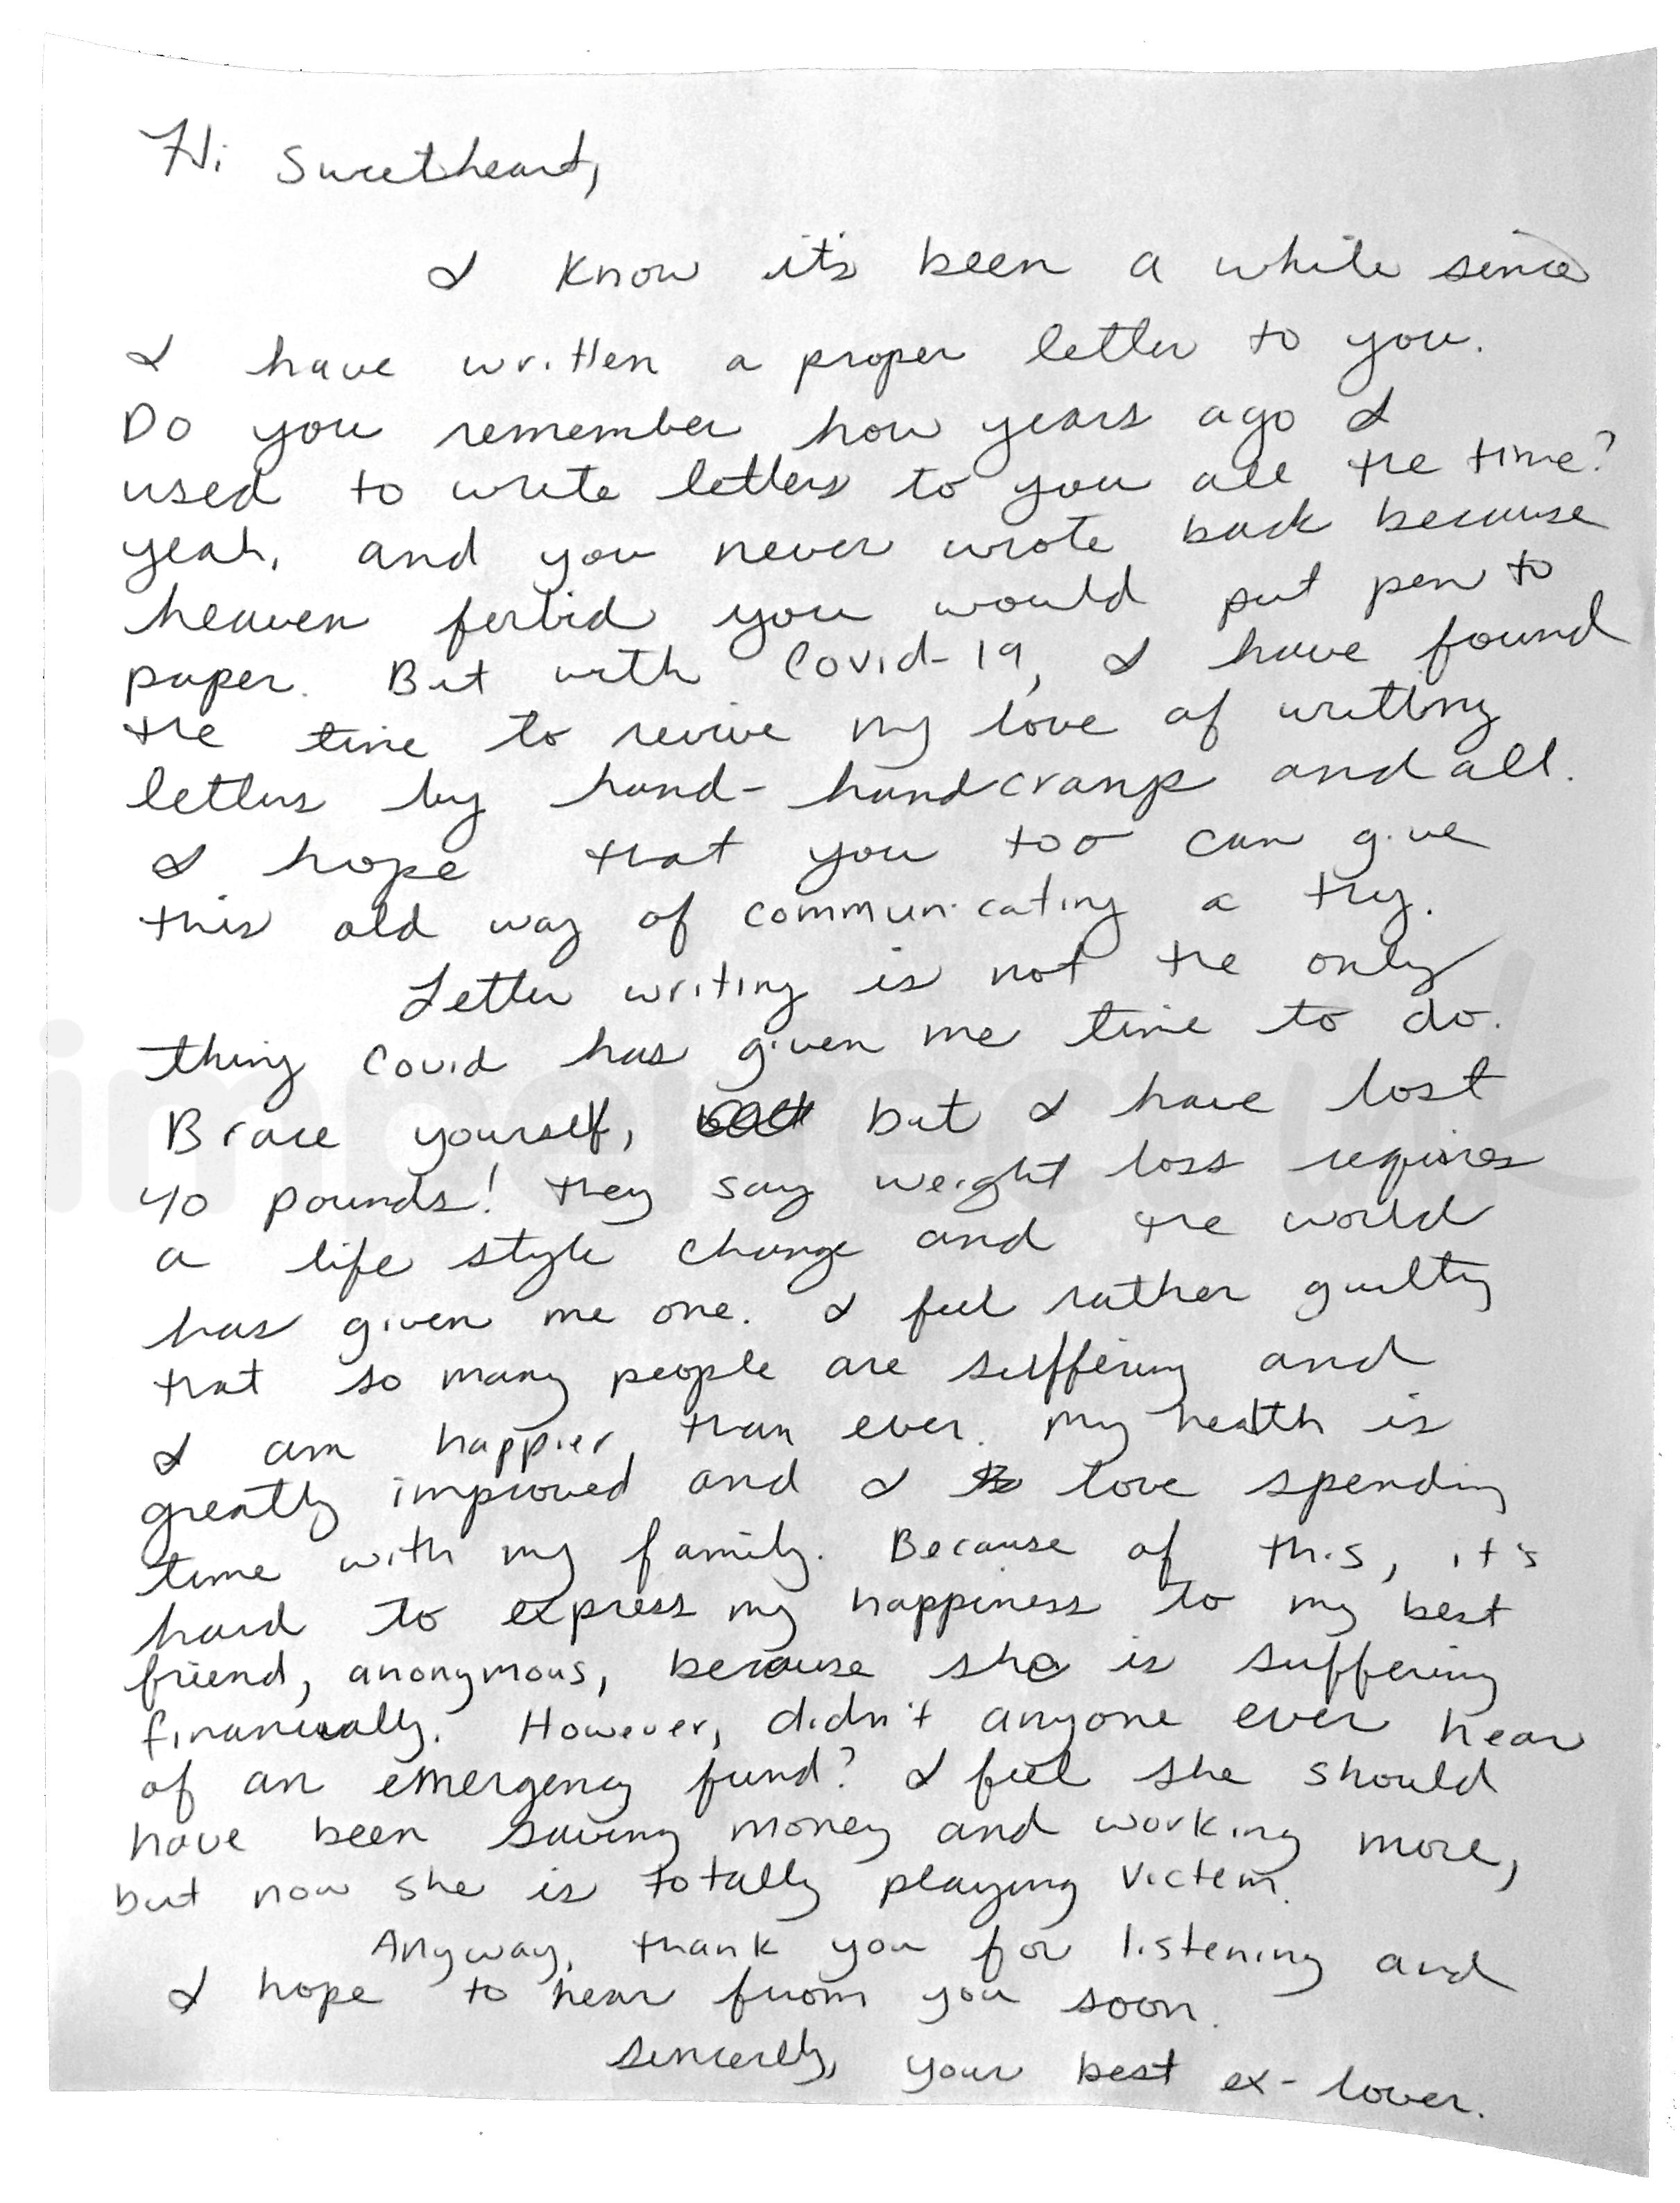 Hi Sweetheart,
I know it's been a while since
I have written a proper letter to you.
Do you remember how years ago I
used to write letters to you all the time?
yeah, and you never wrote back because
heaven forbid you would put pen to
paper. But with Covid-19, I have found
the time to revive my love of writting
letters by hand- hand cramp and all.
I hope that you too can give
this old way of communicating a try.
Letter writing is not the only
thing Covid has given me time to do.
Brace yourself, but I have lost
40 pounds! they say weight loss requires
a life style change and the world
has given me one. I feel rather guilty
that so many people are suffering and
I am happier than ever. My health is
greatly improved and I love spending
time with my family. Because of this, it's
hard to express my happiness to my best
friend, anonymous, because she is suffering
financially. However, didn't anyone ever hear
of an emergency fund? I feel she should
have been saving money and working more,
but now she is totally playing victem.
Anyway, thank you for listening and
I hope to hear from you soon.
Sincerely, your best ex-lover.